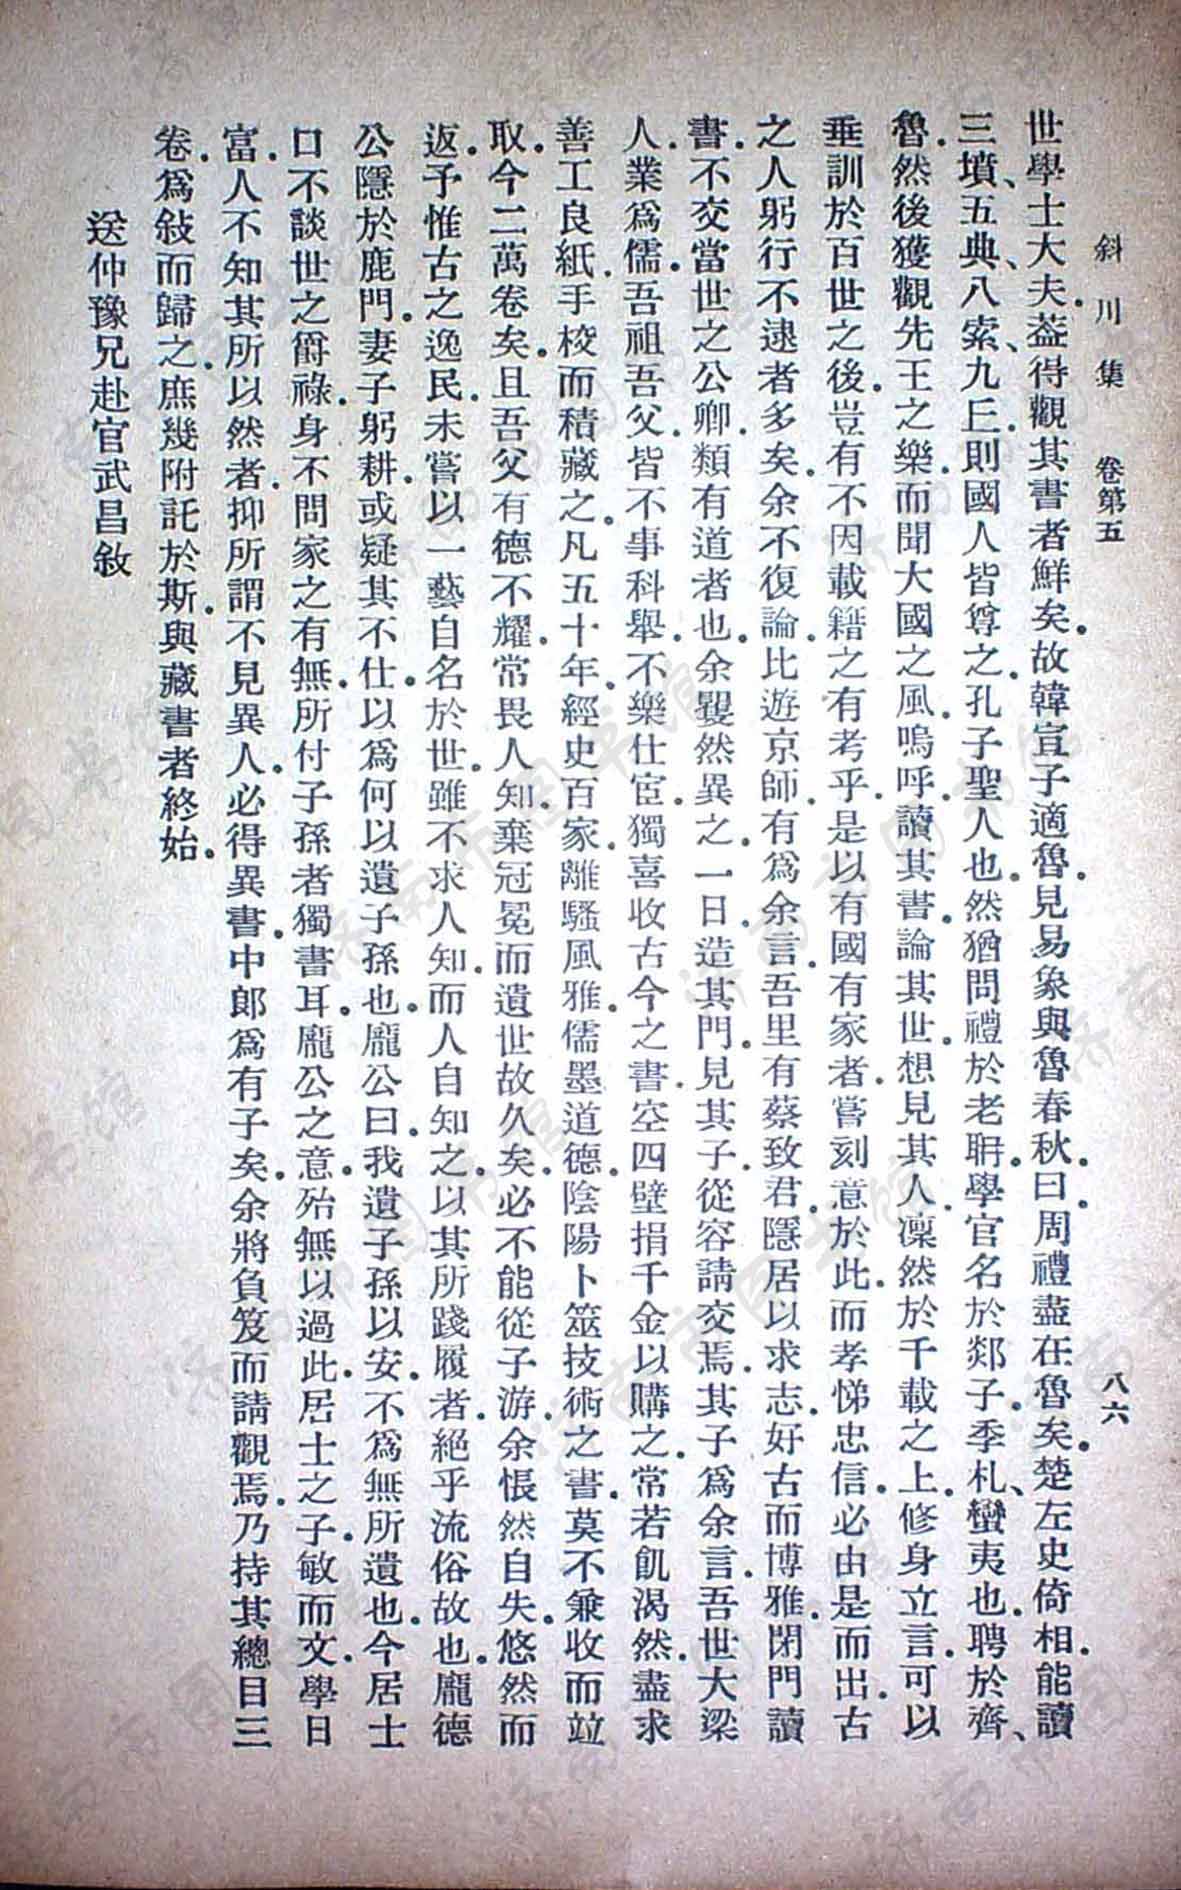 斜川集 卷第五 八六
世學士大夫.葢得觀其書者鮮矣.故韓宣子適魯.見易象與魯春秋.曰.周禮盡在魯矣.楚左史倚相.能讀
三墳、五典、八索、九丘.則國人皆尊之.孔子聖人也.然猶問禮於老聃.學官名於郯子.季札、蠻夷也.聘於齊、
魯.然後獲觀先王之樂.而聞大國之風.嗚呼.讀其書.論其世.想見其人.凜然於千載之上.修身立言.可以
垂訓於百世之後.豈有不因載籍之有考乎.是以有國有家者.嘗刻意於此.而孝悌忠信.必由是而出.古
之人躬行不逮者多矣.余不復論.比遊京師.有爲余言.吾里有蔡致君.隱居以求志.好古而博雅.閉門讀
書.不交當世之公卿.類有道者也.余矍然異之.一日.造其門.見其子.從容請交焉.其子爲余言.吾世大梁
人.業爲儒.吾祖吾父.皆不事科舉.不樂仕宦.獨喜收古今之書.空四壁捐千金以購之.常若飢渴然.盡求
善工良紙.手校而積藏之.凡五十年.經史百家.離騷風雅.儒墨道德.陰陽卜筮技術之書.莫不兼收而竝
取.今二萬卷矣.且吾父有德不耀.常畏人知.棄冠冕而遺世故久矣.必不能從子游.余悵然自失.悠然而
返.予惟古之逸民.未嘗以一藝自名於世.雖不求人知.而人自知之.以其所踐履者.絕乎流俗故也.龐德
公隱於鹿門.妻子躬耕.或疑其不仕.以爲何以遺子孫也.龐公曰.我遺子孫以安.不爲無所遺也.今居士
口不談世之爵祿.身不問家之有無.所付子孫者.獨書耳.龐公之意.殆無以過此.居士之子.敏而文.學日
富.人不知其所以然者.抑所謂不見異人.必得異書.中郎爲有子矣.余將負笈而請觀焉.乃持其總目三
卷.爲敍而歸之.庶幾附託於斯.與藏書者終始.
送仲豫兄赴官武昌敘